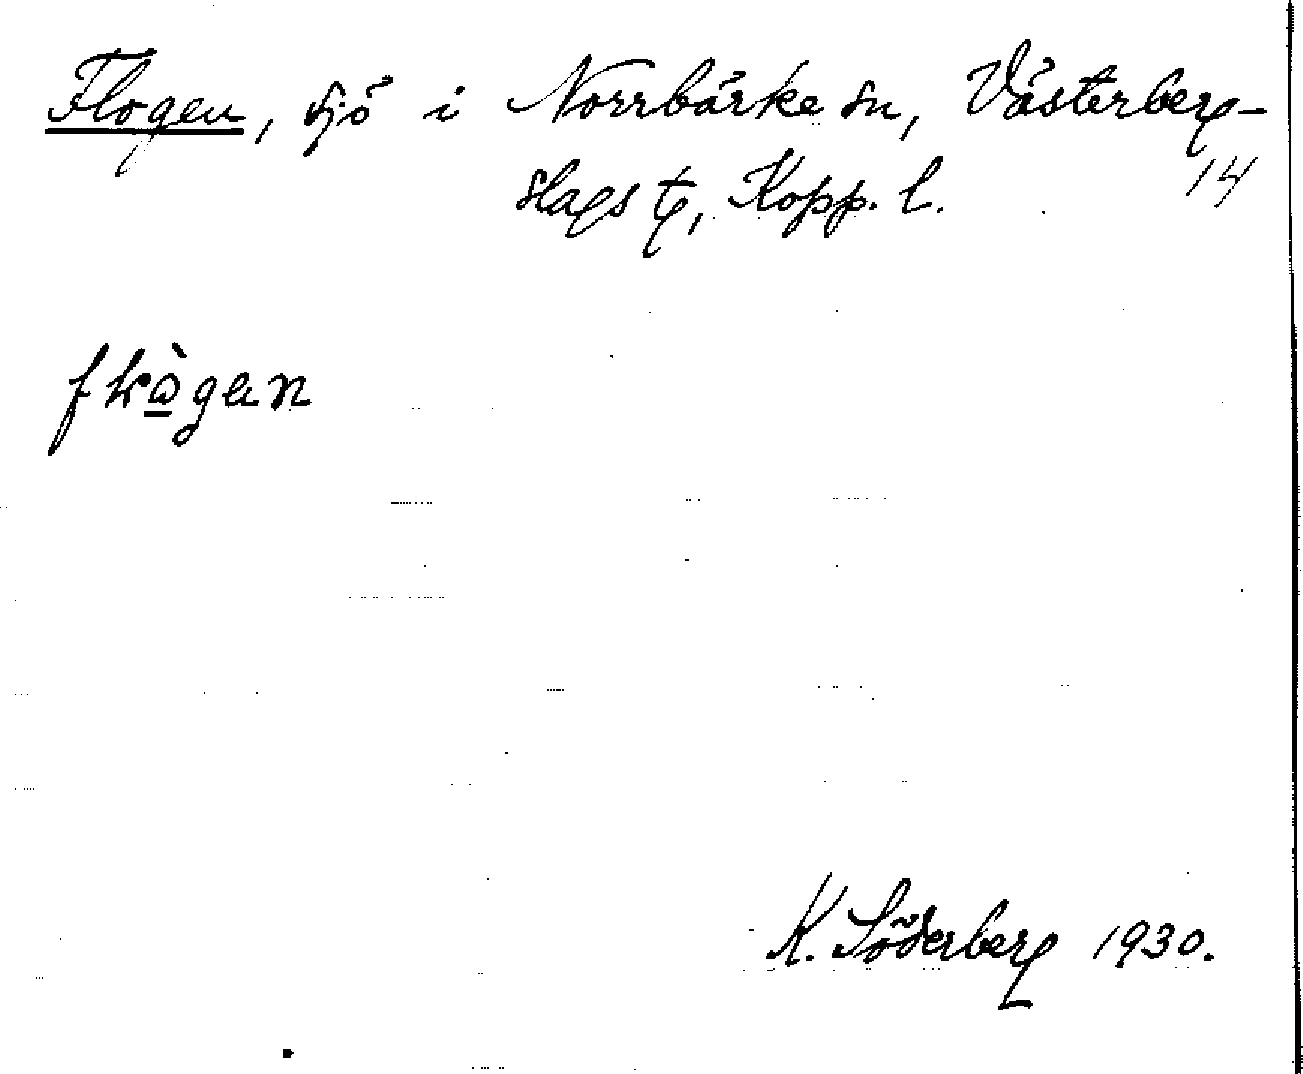 Flogen, sjö i Norrbärke sn, Västerberg-
slags tg, Kopp. l.
14
K. Söderberg 1930.